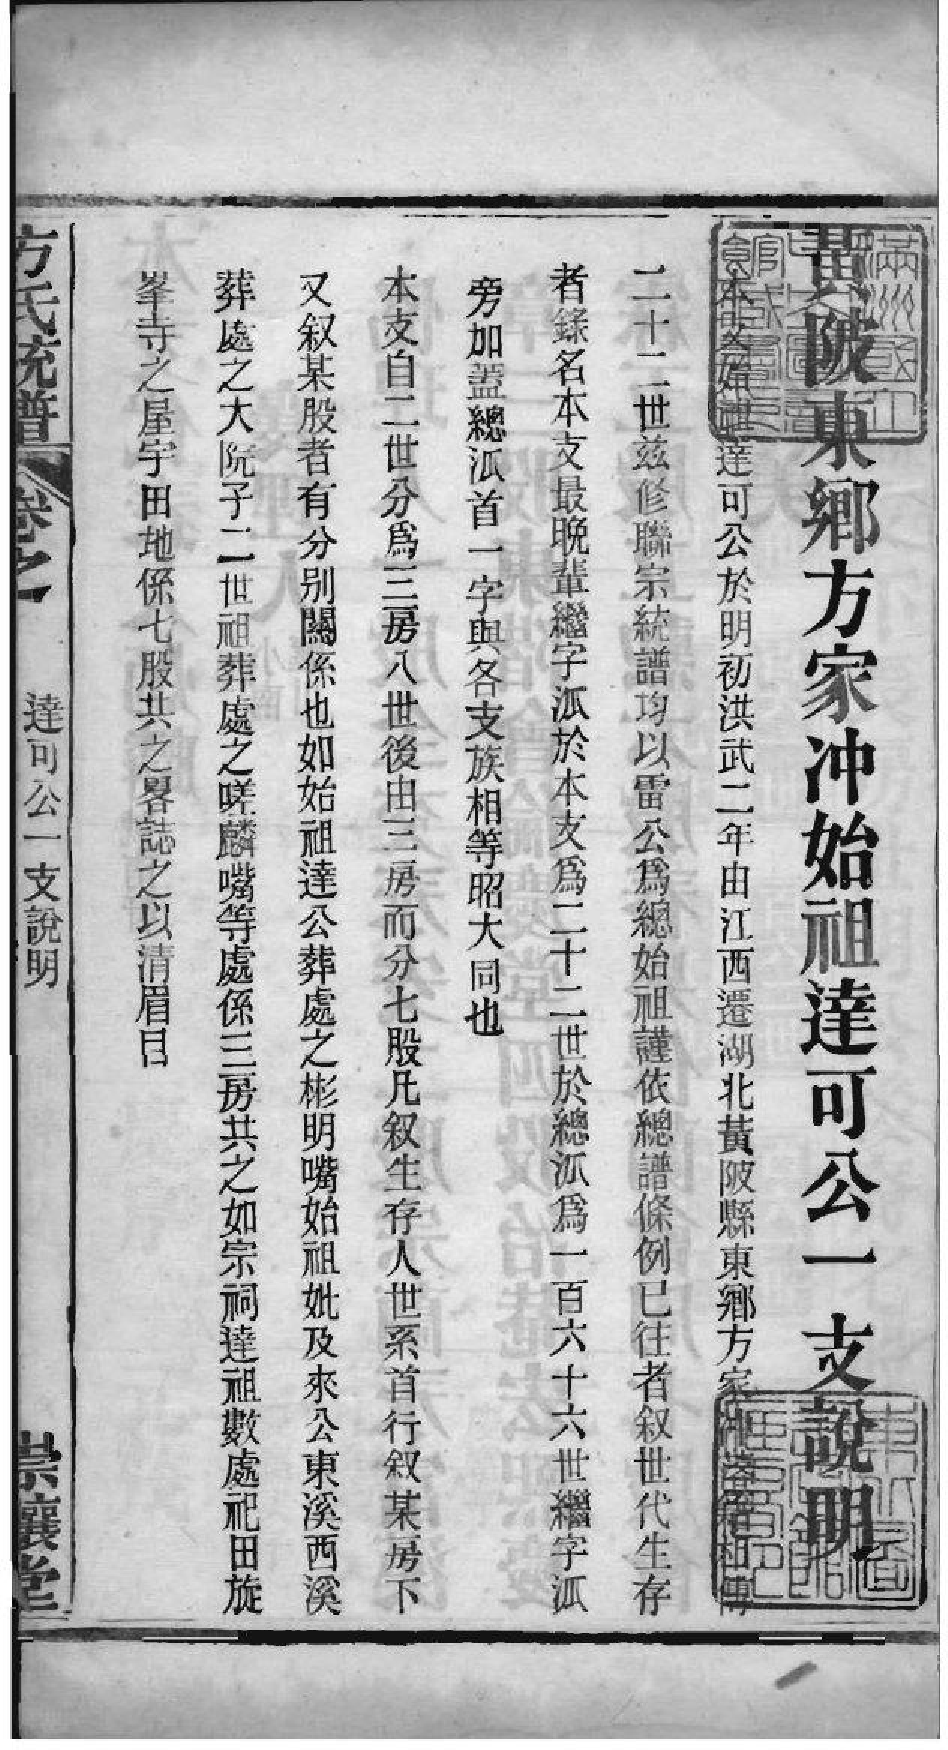 黃陂東鄉方家冲始祖達可公一支說明
本支始祖達可公於明初洪武二年由江西遷湖北黃陂縣東鄉方家冲落籍相傳
二十二世茲修聯宗統譜均以雷公爲總始祖謹依總譜條例已往者叙世代生存
者錄名本支最晚輩繼字派於本支爲二十二世於總派爲一百六十六世繼字派
旁加蓋總派首一字與各支族相等昭大同也
本支自二世分爲三房八世後由三房而分七股凡叙生存人世系首行叙某房下
又叙某股者有分别關係也如始祖達公葬處之彬明嘴始祖妣及來公東溪西溪
葬處之大院子二世祖葬處之嗟麟嘴等處係三房共之如宗祠達祖數處祀田旋
峯寺之屋宇田地係七股共之畧誌之以清眉目
方氏統譜 卷之一 達可公一支說明 崇讓堂